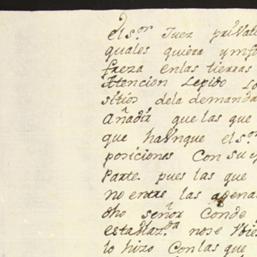 el s.r Juez privati
quales quiera ymfo
freza en las tierras
Atencion Lepido Lo
sitios de la demanda
Añadir que las que
que haunque el s.r
posiciones Con su
Parte pues las que
no entre las agena
dho señor Conde
establez.da no se
lo hizo Con las que